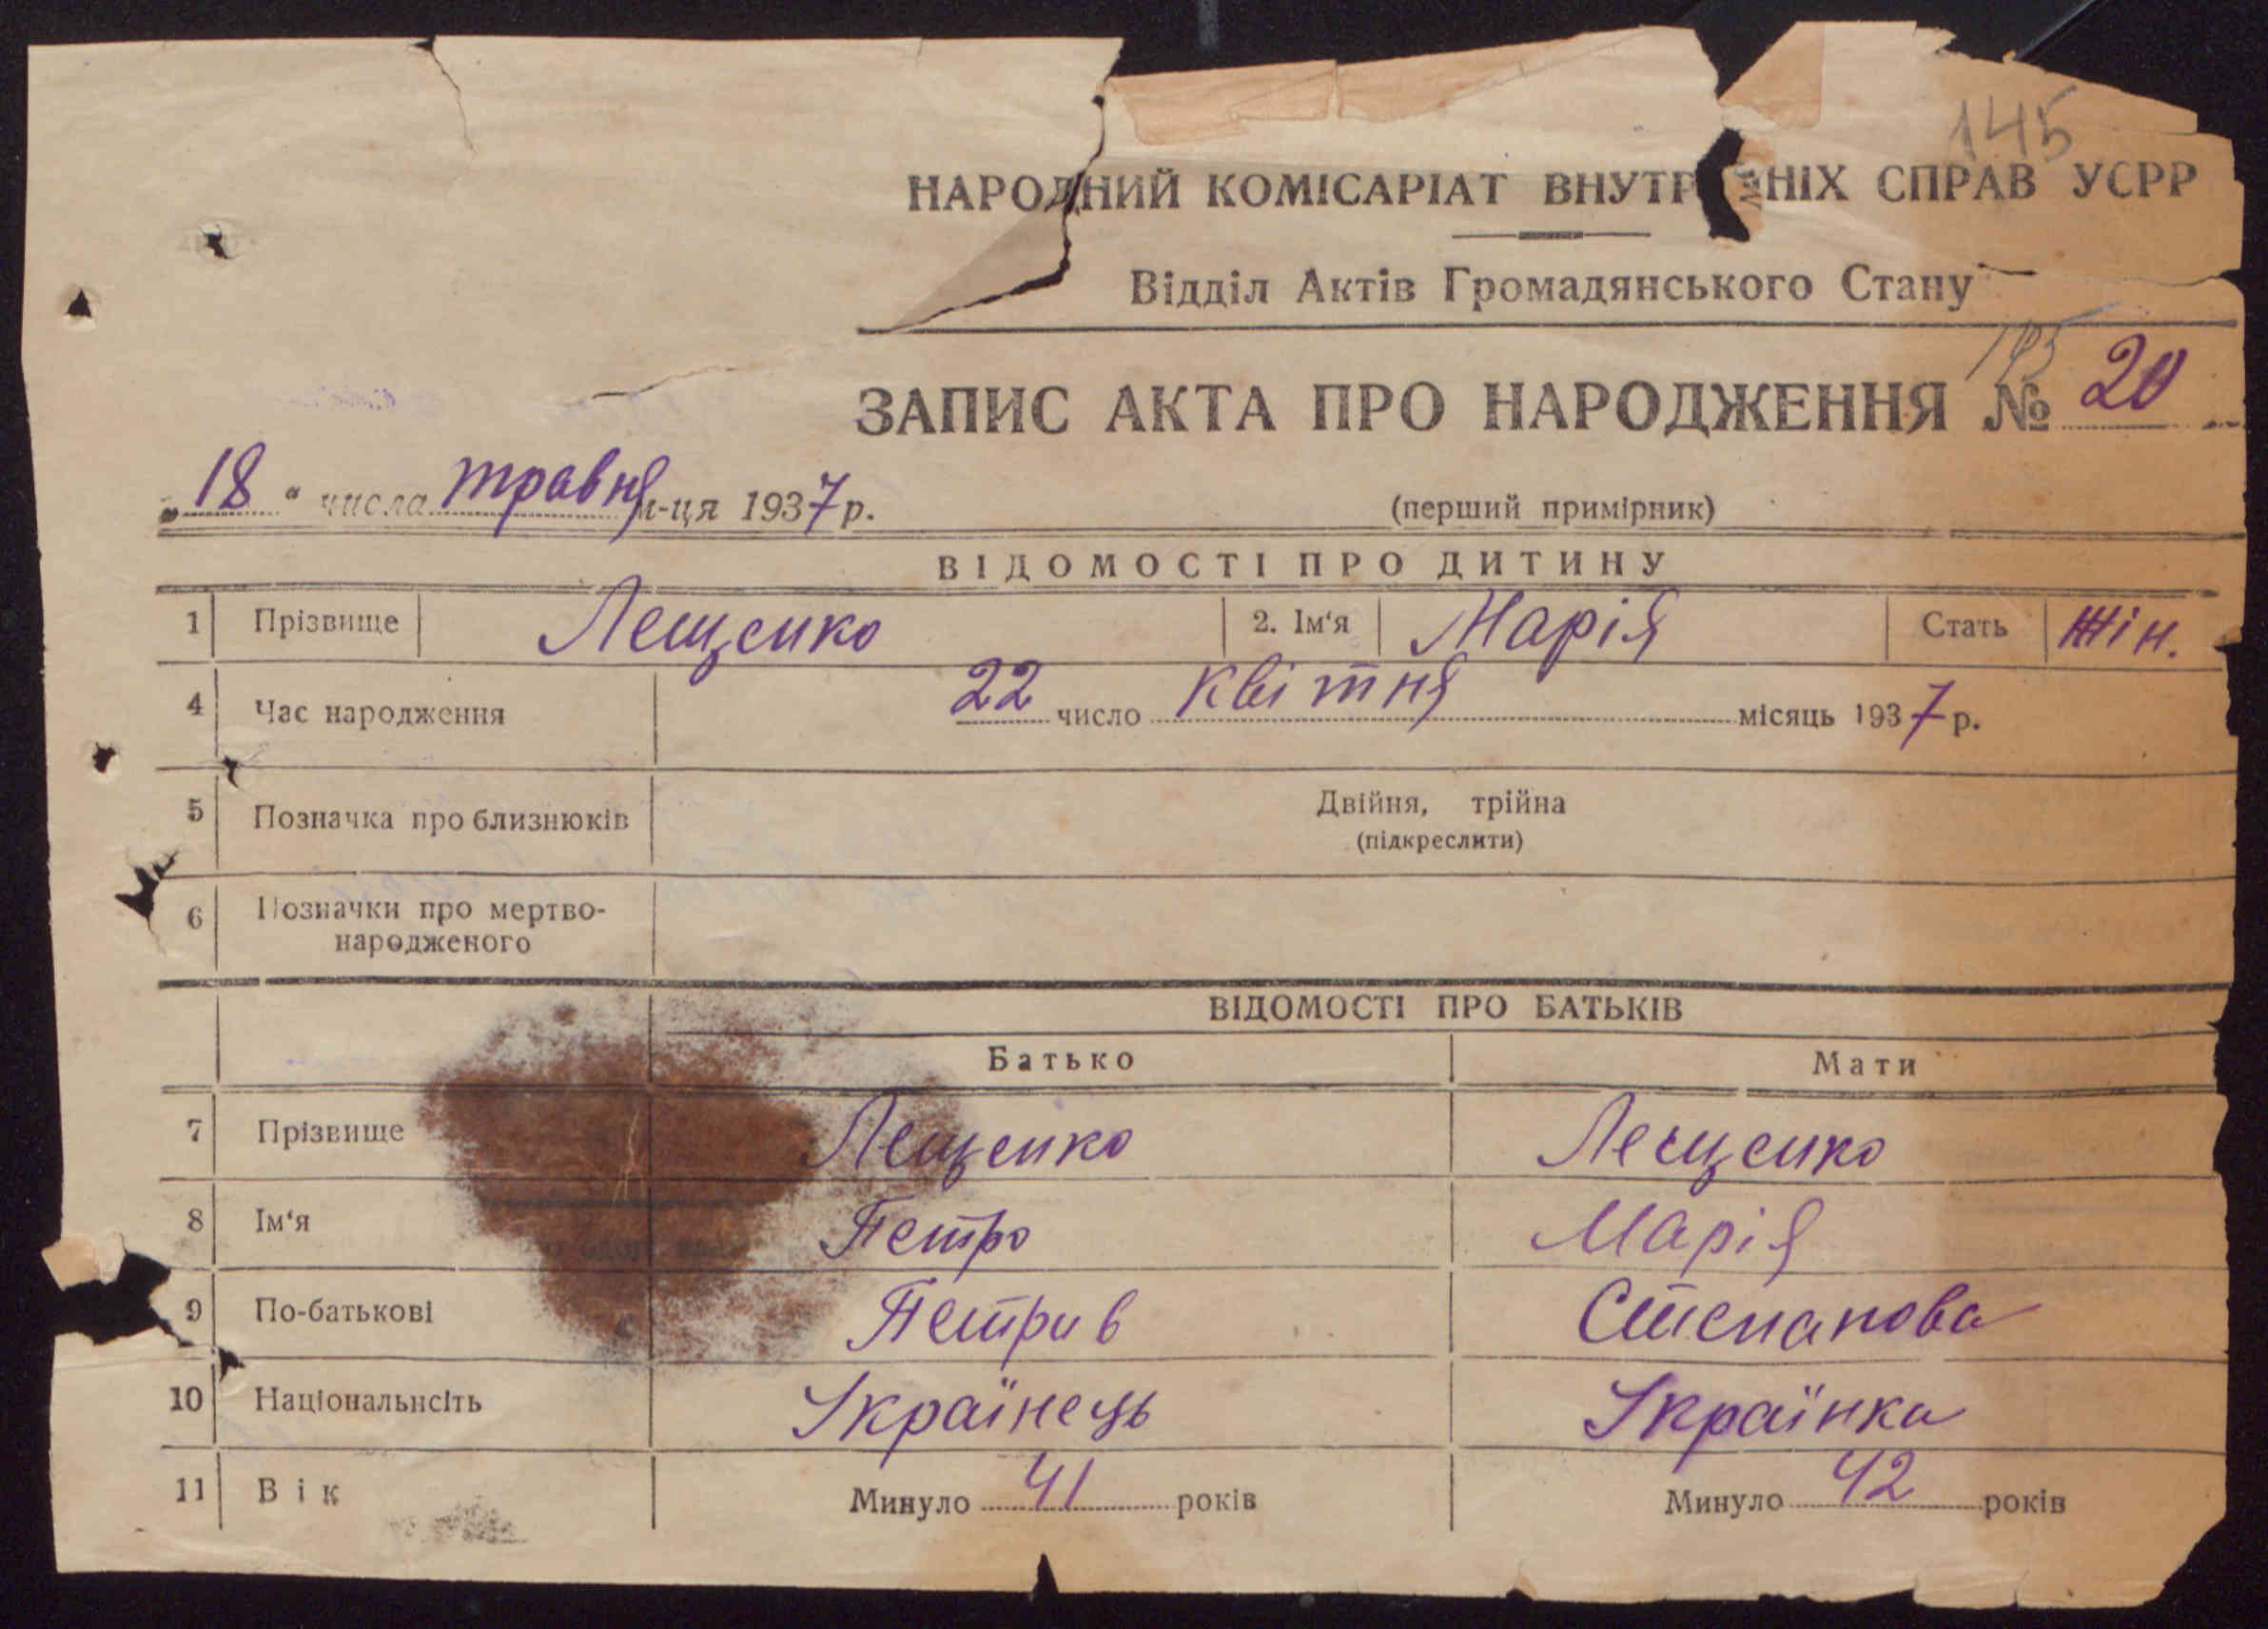 145
НАРОДНИЙ КОМІСАРІАТ ВНУТР НІХ СПРАВ УСРР
Відділ Актів Громадянського Стану
195
ЗАПИС АКТА ПРО НАРОДЖЕННЯ № 20
„18" числа травня м-ця 1937 р.
(перший примірник)
ВІДОМОСТІ ПРО ДИТИНУ
1 Прізвище Лещенко 2. Ім'я Марія Стать Жін.
4 Час народження 22 число Квітня місяць 1937 р.
5 Позначка про близнюків Двійня, трійна
(підкреслити)
6 Позначки про мертво-
народженого
ВІДОМОСТІ ПРО БАТЬКІВ
Батько Мати
7 Прізвище Лещенко Лещенко
8 Ім'я Петро Марія
9 По-батькові Петрив Степанова
10 Національнсіть Українець Українка
11 Вік Минуло 41 років Минуло 42 років